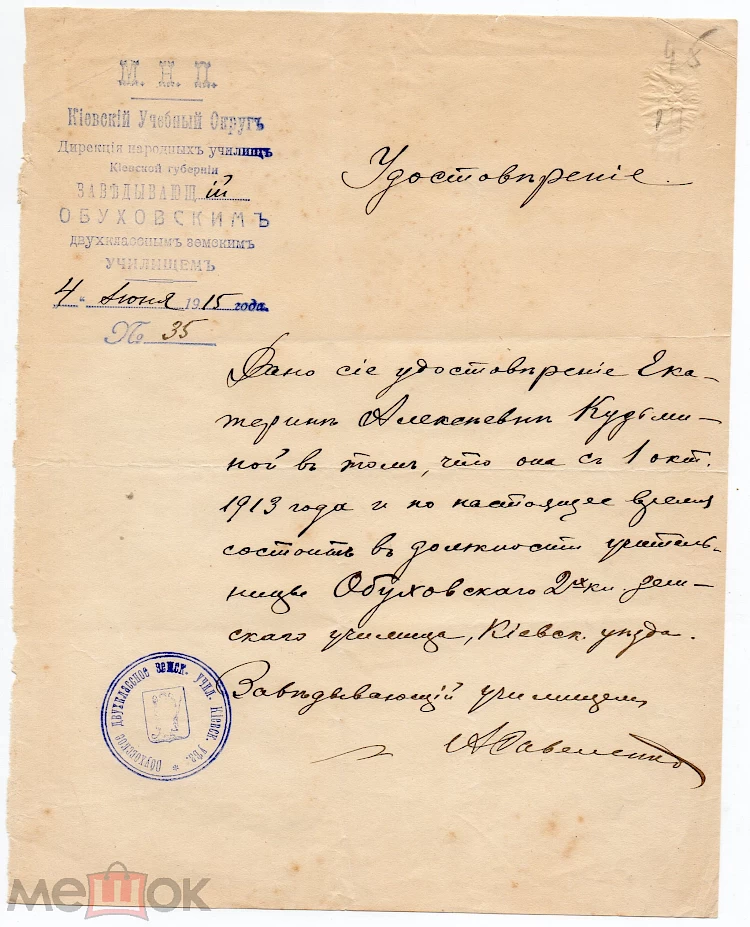 45
М. Н. П.
Кіевскій Учебный Округъ
Дирекція народныхъ училищъ
Кіевской губерніи
ЗАВѢДЫВАЮЩій
ОБУХОВСКИМЪ
двухкласснымъ земскимъ
УЧИЛИЩЕМЪ
4 " Іюня 1915 года.
№ 35
Удостовѣреніе.
Дано сіе удостовѣреніе Ека-
теринѣ Алексѣевнѣ Кудьми-
ной въ томъ, что она съ 1 окт.
1913 года и по настоящее время
состоитъ въ должности учитель-
ницы Обуховскаго 2хкл. зем-
скаго училища, Кіевск. уѣзда.
Завѣдывающій училищемъ
ОБУХОВСКОЕ ДВУХКЛАССНОЕ ЗЕМСК. УЧИЛ. КІЕВСК. УѢЗ. *
А Савеленко
мешок